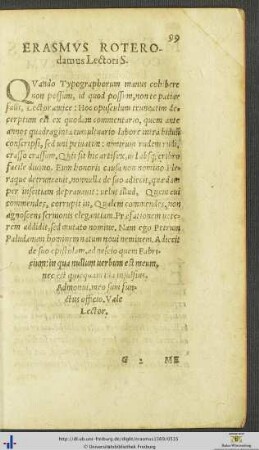 99
ERASMVS ROTERO-
damus Lectori S.
QVando Typographorum manus cohibere
non possum, id quod possum, non te patiar
falli, Lector amice: Hoc opusculum
decerptum est ex quodam commentario, quem ante
annos quadraginta tumultuario labore intra biduum
conscripsi, sed uni privatim: nimirum rudem rudi,
crasso crassum. Quis sit hic artifex,
facile divino. Eum honoris causa non nomino
de suo adiecit, quaedam
per inscitiam depravavit: velut illud, Quem cui
commendes, corrupit in, Qualem commendes, non
agnoscens sermonis elegantiam. Praefationem
addidit, sed mutato nomine. Nam ego Petrum
Paludanum hominem natum novi neminem. Adiecit
de suo epistolam, ad nescio quem
in qua nullum verbum est meum,
nec est quicquam
Admonui, meo sum fun-
ctus officio. Vale
Lector.
G 2 ME
http://dl.ub.uni-freiburg.de/diglit/
© Universitätsbibliothek Freiburg
Baden-Württemberg